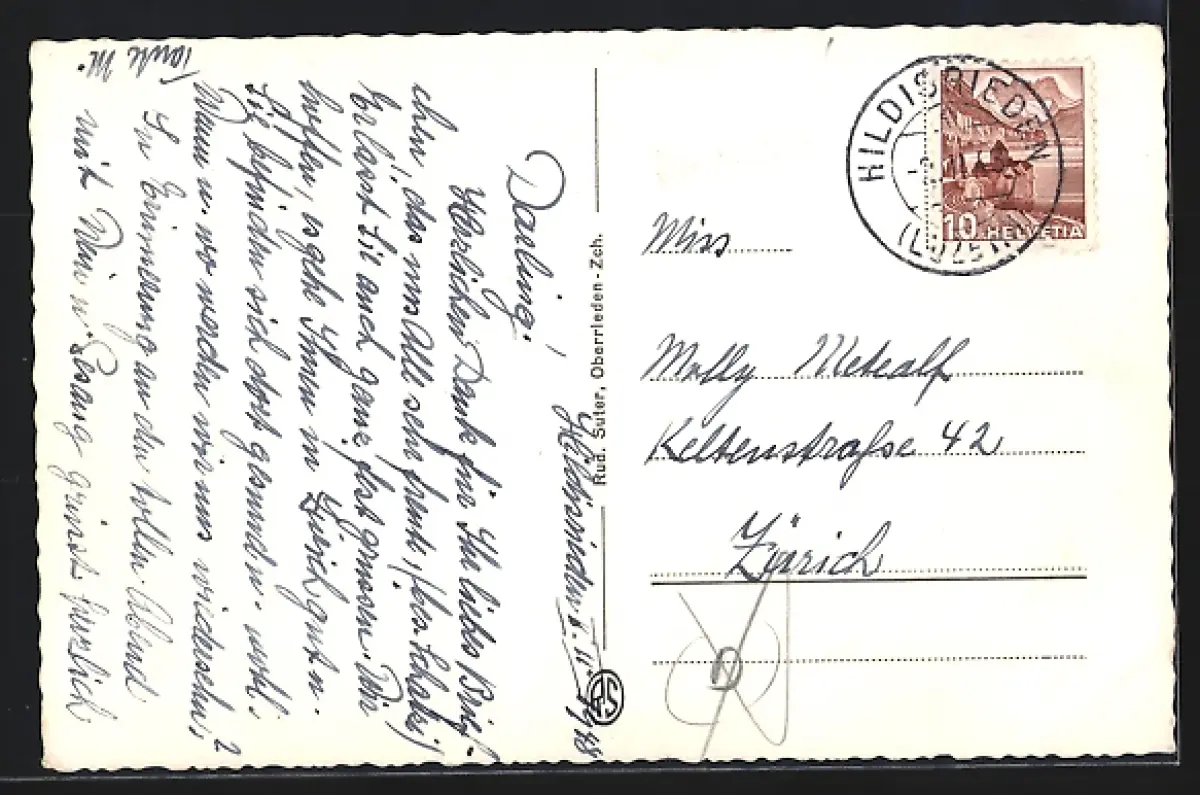 Hildisrieden
Darling!
Herzlichen Dank für Ihr liebes Brief-
chen, das uns Alle sehr freut,
Erlärst Sie auch ganz fest grüssen. Wir
hoffen, es gehe Ihnen in Zürich gut u.
Sie befinden sich dort gesund u. wohl.
Wann u. wo werden wir uns wiedersehn,?
In Erinnerung an den tollen Abend
mit Wein u. Gesang grüsst herzlich
Tante M.
Rud. Suter, Oberrieden - Zch.
RS
HILDISRIEDEN
(LUZERN)
10 HELVETIA
Miss
Molly Metcalf
Keltenstraße 42
Zürich